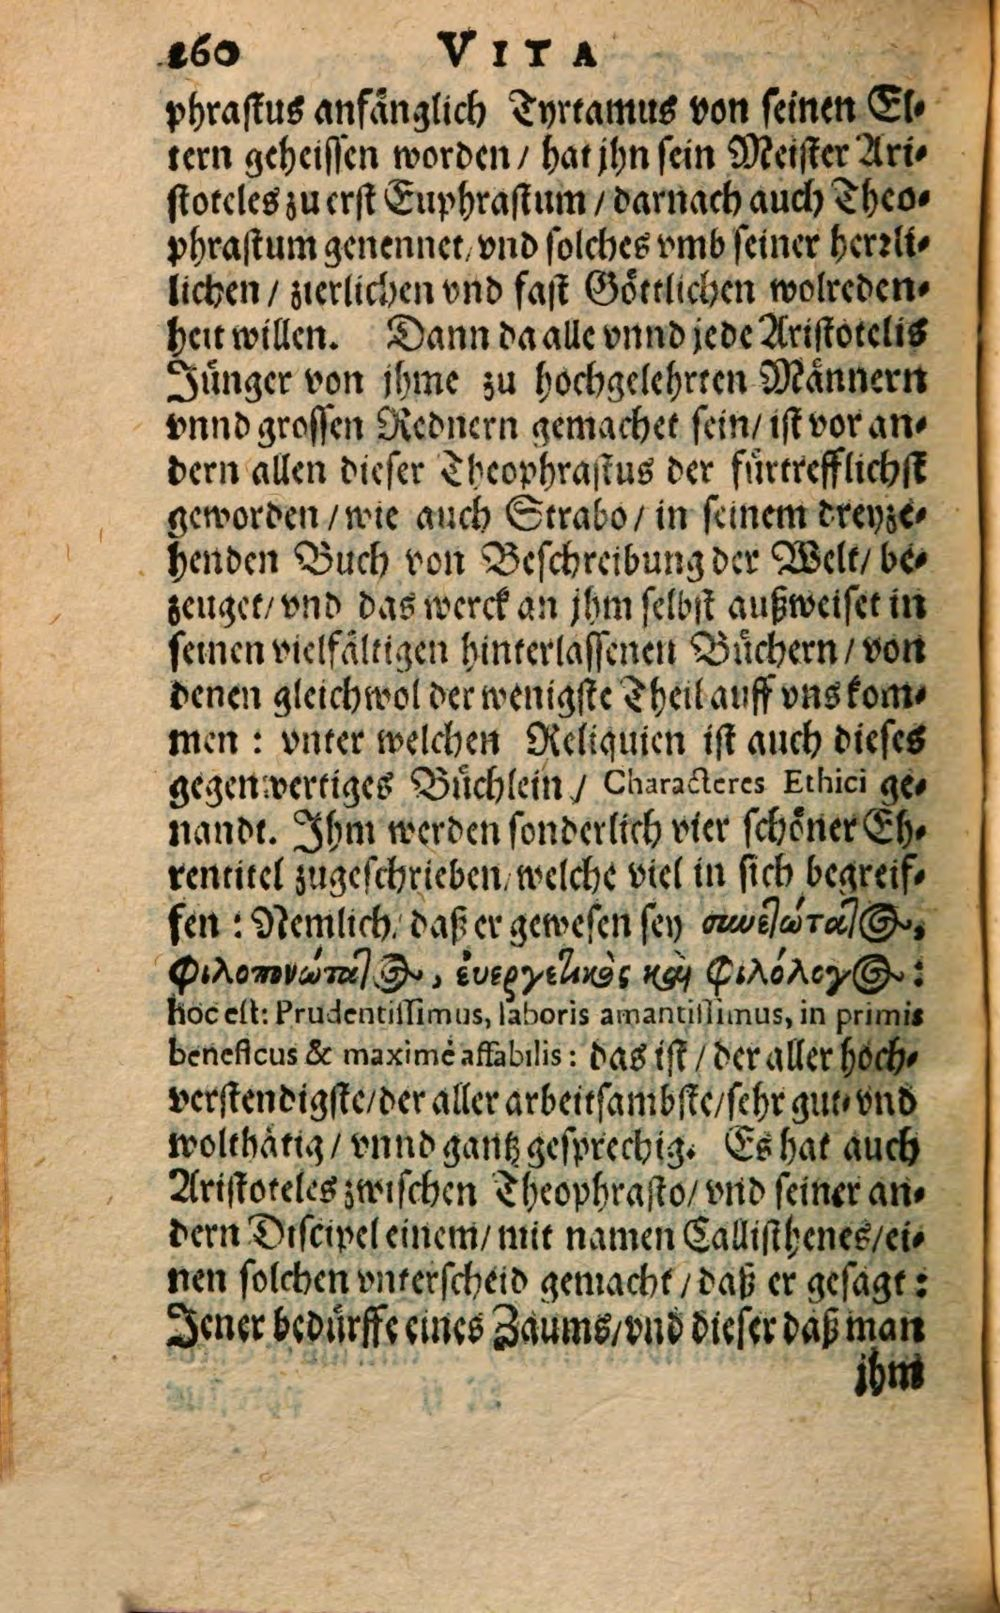 260 VITA
phraſtus anfänglich Tyrtamus von ſeinen El-
tern geheiſſen worden / hat jhn ſein Meiſter Ari-
ſtoteles zu erſt Euphraſtum / darnach auch Theo-
phraſtum genennet / vnd ſolches vmb ſeiner herꝛli-
lichen / zierlichen vnd faſt Göttlichen wolreden-
heit willen. Dann da alle vnnd jede Ariſtotelis
Jünger von jhme zu hochgelehrten Männern
vnnd groſſen Rednern gemachet ſein / iſt vor an-
dern allen dieſer Theophraſtus der fürtrefflichſt
geworden / wie auch Strabo / in ſeinem dreyze-
henden Buch von Beſchreibung der Welt / be-
zeuget / vnd das werck an jhm ſelbſt außweiſet in
ſeinen vielfältigen hinterlaſſenen Büchern / von
denen gleichwol der wenigſte Theil auff vns kom-
men : vnter welchen Reliquien iſt auch dieſes
gegenwertiges Büchlein / Characteres Ethici ge-
nandt. Jhm werden ſonderlich vier ſchöner Eh-
rentitel zugeſchrieben / welche viel in ſich begreif-
fen : Nemlich / daß er geweſen ſey συνετώτατος,
φιλοπονώτατος, ἐυεργετικὸς καὶ φιλόλογος :
hoc eſt: Prudentiſſimus, laboris amantiſſimus, in primis
beneficus & maximè affabilis : das iſt / der aller hoch-
verſtendigſte / der aller arbeitſambſte / ſehr gut- vnd
wolthätig / vnnd gantz geſprechig. Es hat auch
Ariſtoteles zwiſchen Theophraſto / vnd ſeiner an-
dern Diſcipel einem / mit namen Calliſthenes / ei-
nen ſolchen vnterſcheid gemacht / daß er geſagt :
Jener bedürffe eines Zaums / vnd dieſer daß man
jhm